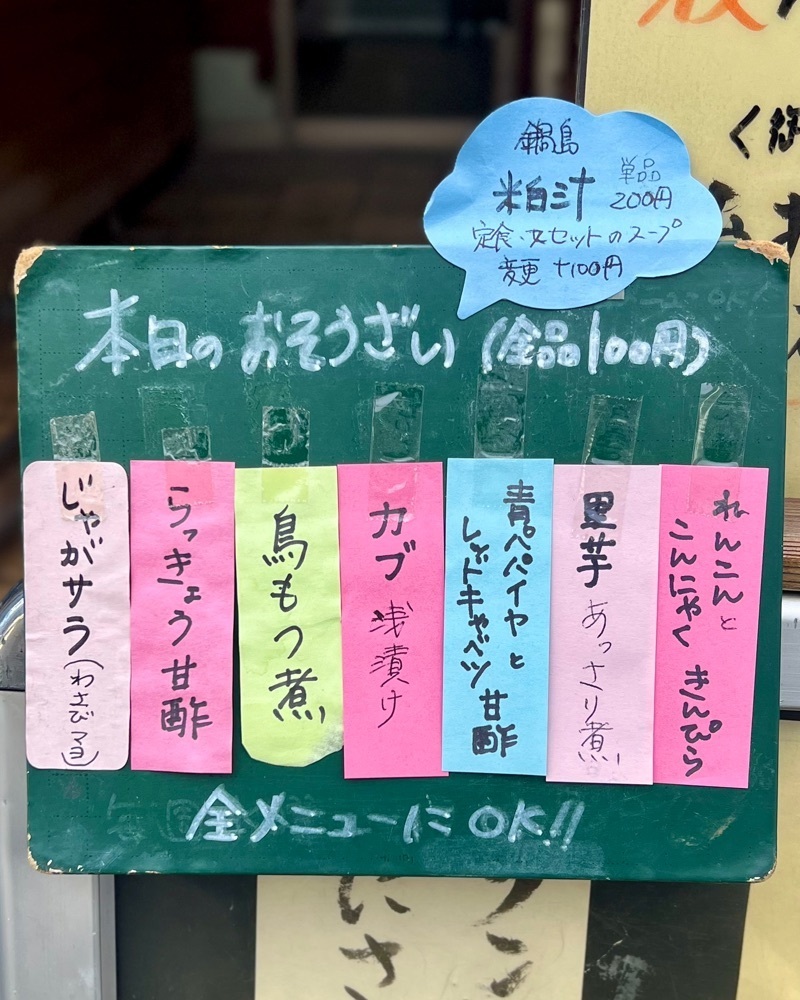 鍋島
粕汁 単品 200円
定食・丼セットのスープ
変更 +100円
本日のおそうざい(全品100円)
れんこんと
こんにゃく きんぴら
里芋 あっさり煮
青パパイヤと
レッドキャベツ 甘酢
カブ 浅漬け
鳥もつ煮
らっきょう甘酢
じゃがサラ(わさびマヨ)
全メニューにOK!!